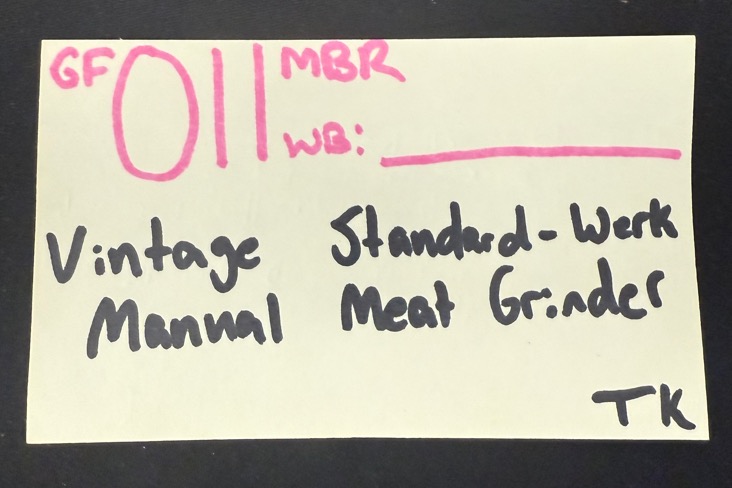 GF 011 MBR
WB: ____________
Vintage Standard-Werk
Manual Meat Grinder
TK